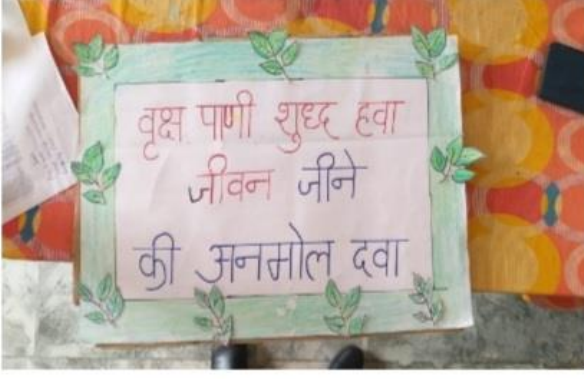 वृक्ष पाणी शुध्द हवा
जीवन जीने
की अनमोल दवा